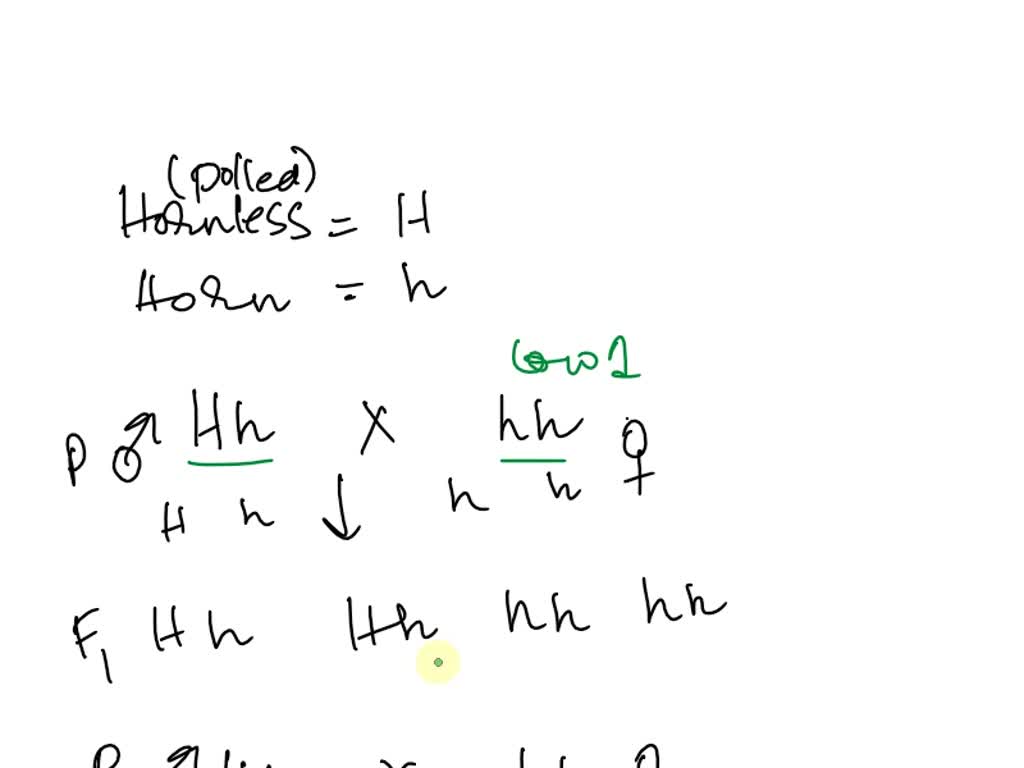 (polled)
Hornless = H
Horn = h
Cow 1
P ♂ Hh X hh ♀
H h ↓ h h
F1 Hh Hh hh hh
P ♂ X ♀